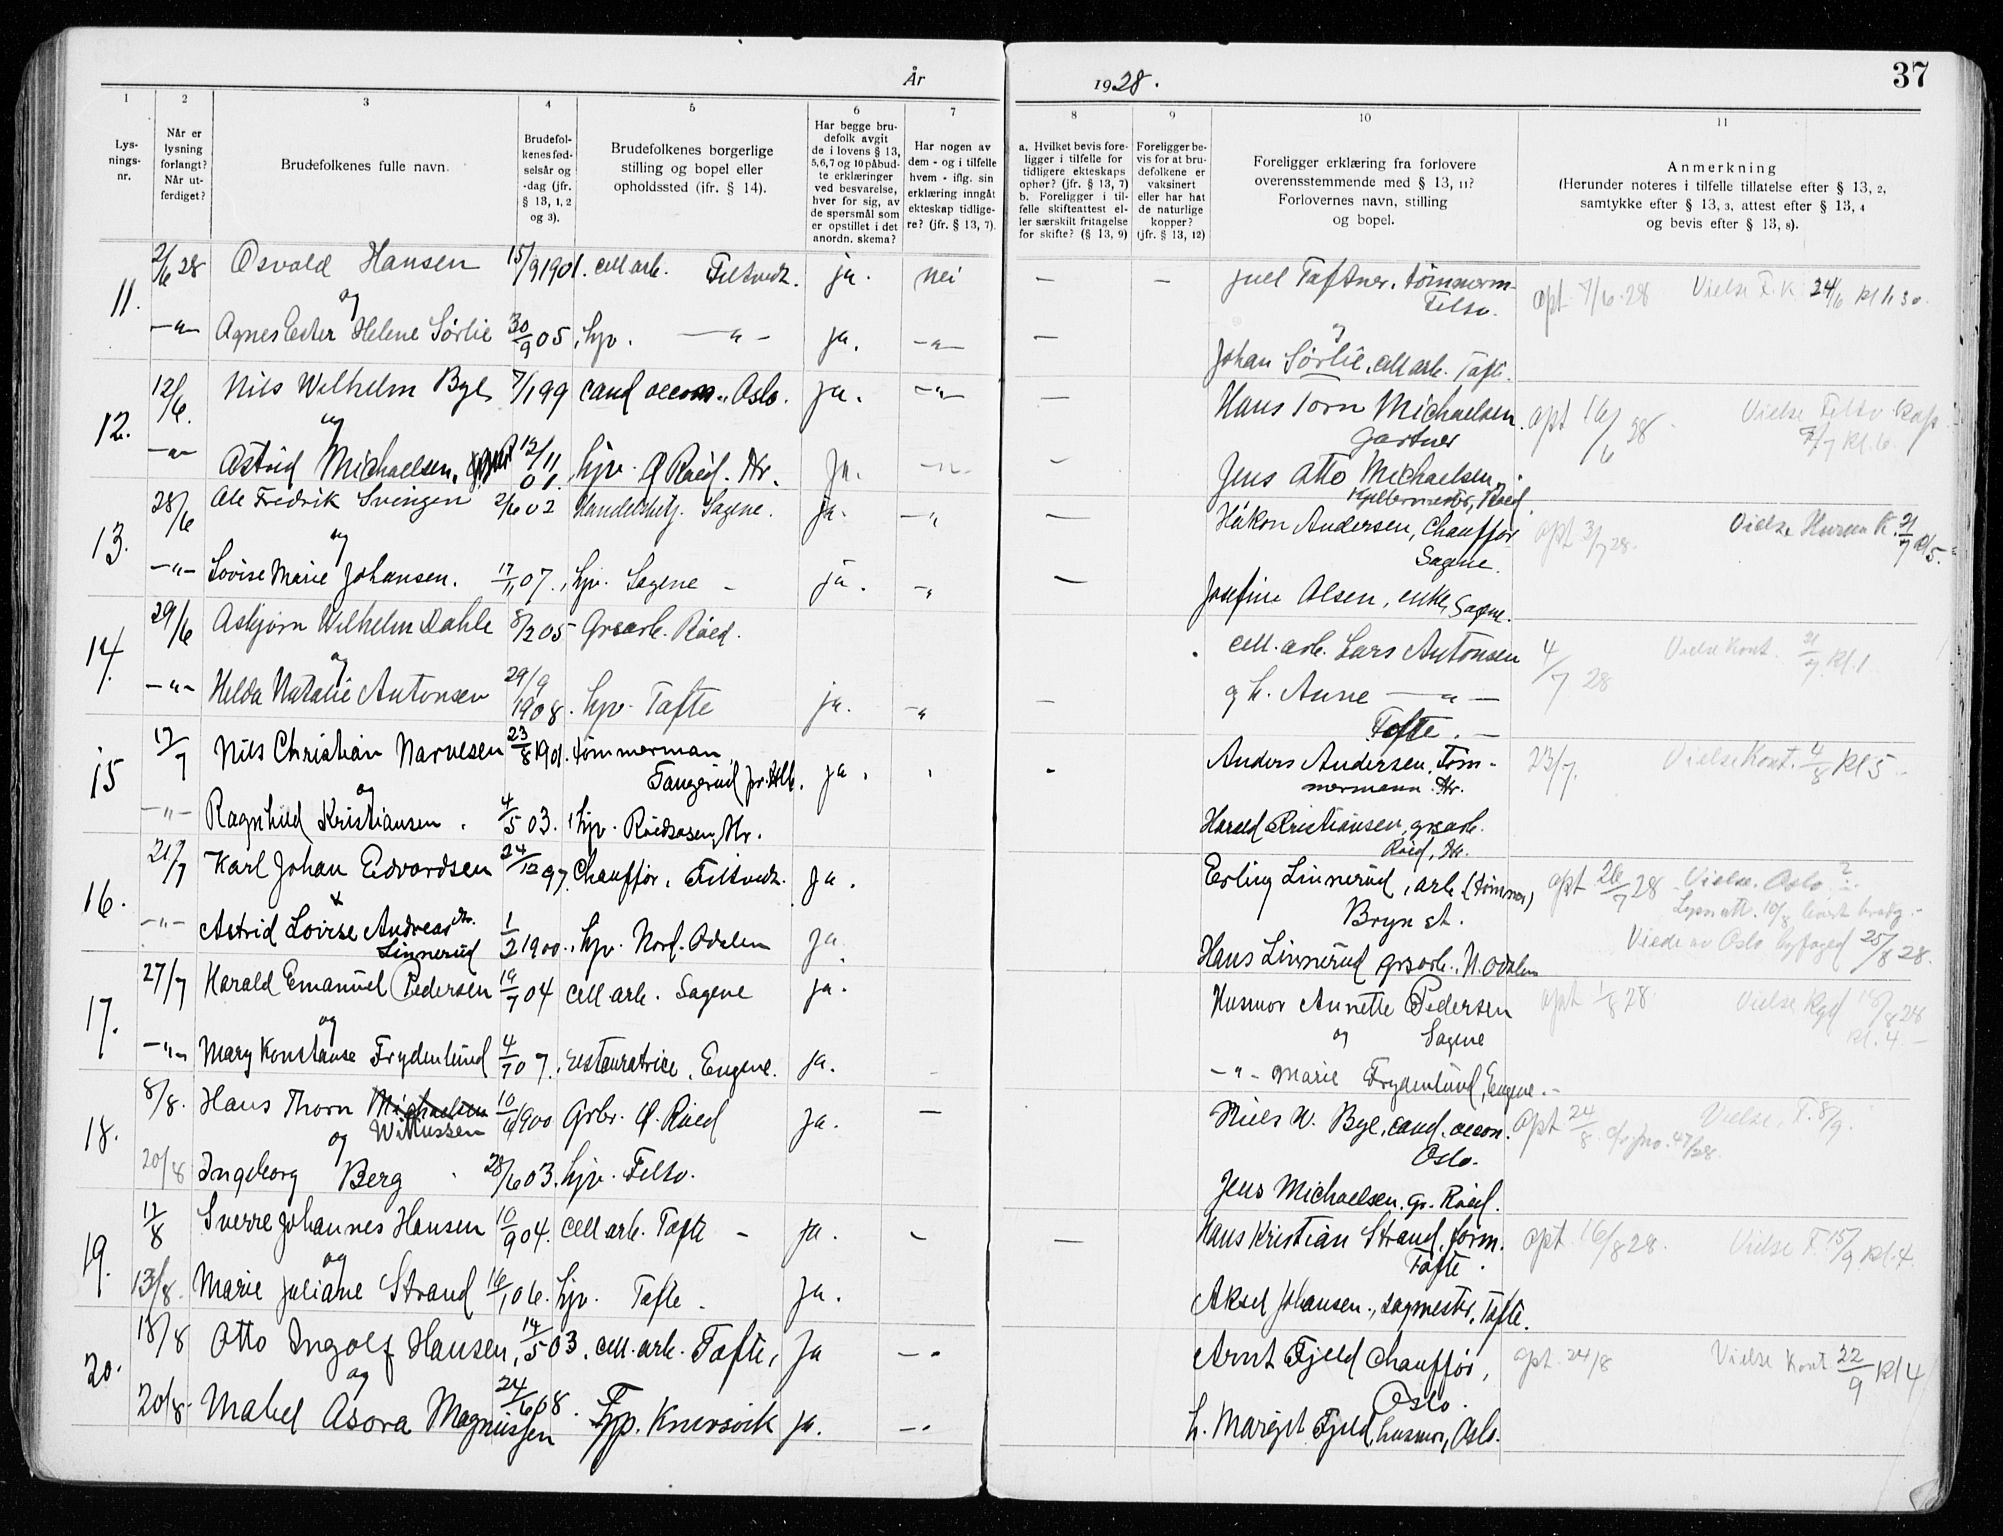 År 1928. 37
1 2 3 4 5 6 7 8 9 10 11
Lys-
nings-
nr.
Når er
lysning
forlangt?
Når ut-
ferdiget?
Brudefolkenes fulle navn.
Brudefol-
kenes fød-
selsår og
-dag (jfr.
§ 13, 1, 2
og 3).
Brudefolkenes borgerlige
stilling og bopel eller
opholdssted (jfr. § 14).
Har begge bru-
defolk avgit
de i lovens § 13,
5, 6, 7 og 10 påbud-
te erklæringer
ved besvarelse,
hver for sig, av
de spørsmål som
er opstillet i det
anordn. skema?
Har nogen av
dem - og i tilfelle
hvem - iflg. sin
erklæring inngått
ekteskap tidlige-
re? (jfr. § 13, 7).
a. Hvilket bevis fore-
ligger i tilfelle for
tidligere ekteskaps
ophør? (jfr. § 13, 7)
b. Foreligger i til-
felle skifteattest el-
ler særskilt fritagelse
for skifte? (§ 13, 9)
Foreligger be-
vis for at bru-
defolkene er
vaksinert
eller har hat
de naturlige
kopper?
(jfr. § 13, 12)
Foreligger erklæring fra forlovere
overensstemmende med § 13, 11?
Forlovernes navn, stilling
og bopel.
Anmerkning
(Herunder noteres i tilfelle tillatelse efter § 13, 2,
samtykke efter § 13, 3, attest efter § 13, 4
og bevis efter § 13, 8).
11. 2/6 28 Osvald Hansen 15/9 1901. cell arb. Filtvedt. ja. nei — — Juel Toftner, tømmerm.
Filtv.
opt 7/6 28 Vielse F. K 24/6 kl 1,30.
og
—"— Agnes Ester Helene Sørlie 30/9 05, hjv. —"— ja. —"— — Johan Sørlie, cell arb. Tofte.
12. 12/6. Nils Wilhelm Bye 7/1 99 cand oecon., Oslo. ja. —"— — Hans Torn Michaelsen.
Gartner
opt 16/6 28. Vielse Filtv. kap.
7/7 kl. 6.
og
—"— Astrid Michaelsen, 12/11 01. hjv. Ø Røed. Hr. ja. —"— — Jens Otto Michaelsen,
Røed.
13. 28/6 Ole Fredrik Svingen 2/6 02 Handelsbetj. Sagene. ja. —"— — Håkon Andersen, Chauffør
Sagene.
opt 3/7 28. Vielse Hurum K. 21/7 kl 5.
og
—"— Lovise Marie Johansen. 17/11 07., hjv. Sagene — ja. —"— — Josefine Olsen, enke, Sagene.
14. 29/6 Asbjørn Wilhelm Dahle 8/2 05 Grsarb. Røed. cell. arb. Lars Antonsen 4/7 28 Vielse Kont. 21/7 kl. 1.
og
—"— Helda Natalie Antonsen 29/9 1908. hjv. Tofte ja. —"— — g h. Anne —"—
Tofte. —
15 17/7 Nils Christian Narvesen 23/8 1901. tømmerman,
Tangerud pr. Hlb. ja. Anders Andersen, Tøm-
mermann. Hr.
23/7. Vielse Kont. 4/8 kl 5.
og
—"— Ragnhild Kristiansen. 4/5 03. hjv. Røedsåsen, Hr. Harald Kristiansen, grsarb.
Røed, Hr.
16. 21/7 Karl Johan Edvardsen 24/12 97. Chauffør, Filtvedt. ja. Erling Linnerud, arb. (tømmer)
Bryn st.
opt 26/7 28 Vielse. Oslo ?
Lysn att. 10/8
x
—"— Astrid Lovise Andreas dtr.
Linnerud 1/2 1900., hjv. Nord. Odalen ja. Hans Linnerud grsarb., N. Odalen
Viede av Oslo byfoged 25/8 28.
17. 27/7 Harald Emanuel Pedersen 19/7 04 cell arb. Sagene ja. Husmor Annette Pedersen
og Sagene
opt 1/8 28. Vielse Kgd 18/8 28
kl. 4. —
og
—"— Mary Konstanse Frydenlund 4/7 07., restauratrice, Engene. ja. —"— Marie Frydenlund, Engene. —
18. 8/8. Hans Thorn Michaelsen
Willussen 10/6 1900 Grbr. Ø. Røed ja. — Niels W. Bye, cand. oecon.
Oslo.
opt 24/8 cfr jno. 47/28. Vielse. F. 8/9.
og
20/8 Ingeborg Berg 28/6 03. hjv. Filtv. Jens Michaelsen, gr. Røed.
19. 11/8 Sverre Johannes Hansen 10/9 04. cell arb. Tofte — ja. — — Hans Kristian Strand, form.
Tofte.
opt. 16/8 28. Vielse F. 15/9 kl. 4.
og
13/8. Marie Juliane Strand 16/1 06. hjv. Tofte. ja. Aksel Johansen., sagmester, Tofte.
20. 18/8 Otto Ingolf Hansen, 14/5 03. cell. arb. Tofte, ja —"— Arnt Fjeld Chauffør,
Oslo.
opt. 24/8 Vielse Kont 22/9 kl 4
og
20/8. Mabel Asora Magnussen 24/6 08. hjp. Knivsvik ja. —"— h. Margit Fjeld, husmor, Oslo.